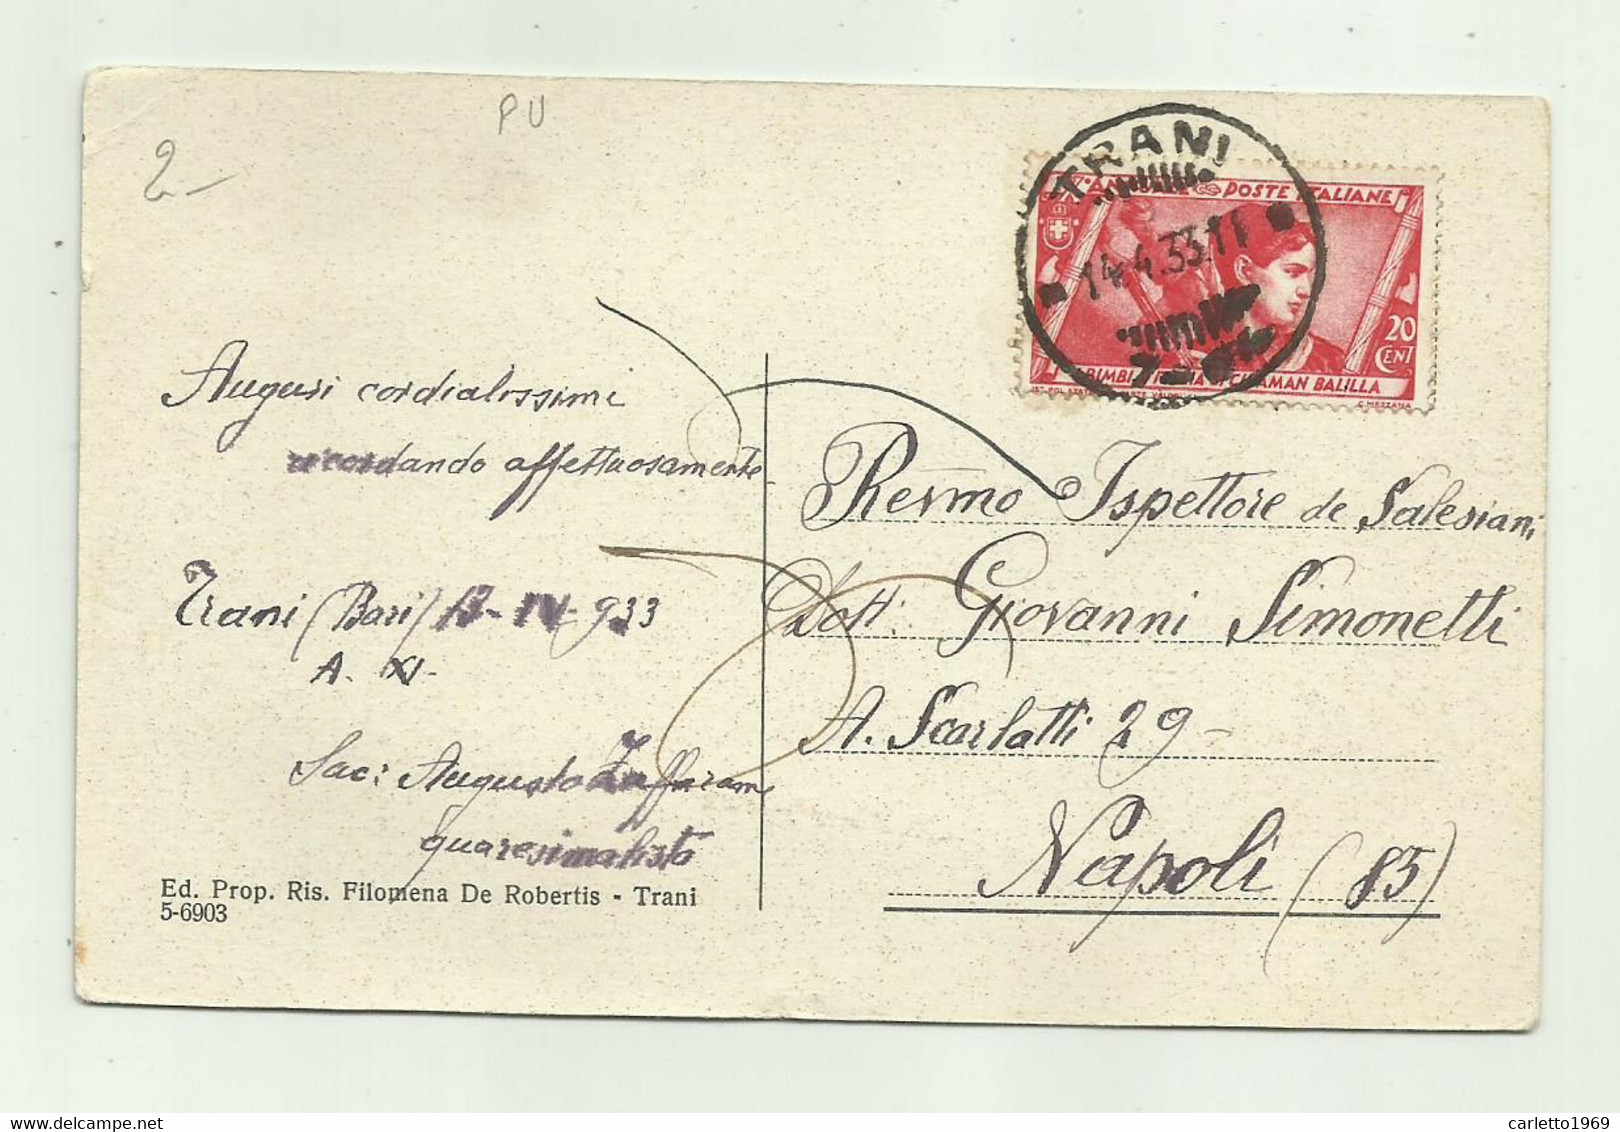 PU
2-
TRANI
14.4.33.11
X° ANN POSTE ITALIANE
20
CENT
BIMBI D'ITALIA SI CHIAMAN BALILLA
C. MEZZANA
Auguri cordialissimi
ricordando affettuosamente
Trani (Bari) 13-IV-933
A. XI-
Sac: Augusto Zaffaram
quaresimalista
Ed. Prop. Ris. Filomena De Robertis - Trani
5-6903
Revmo Ispettore de Salesiani
Dott. Giovanni Simonetti
A. Scarlatti 29-
Napoli (85)
carletto1969